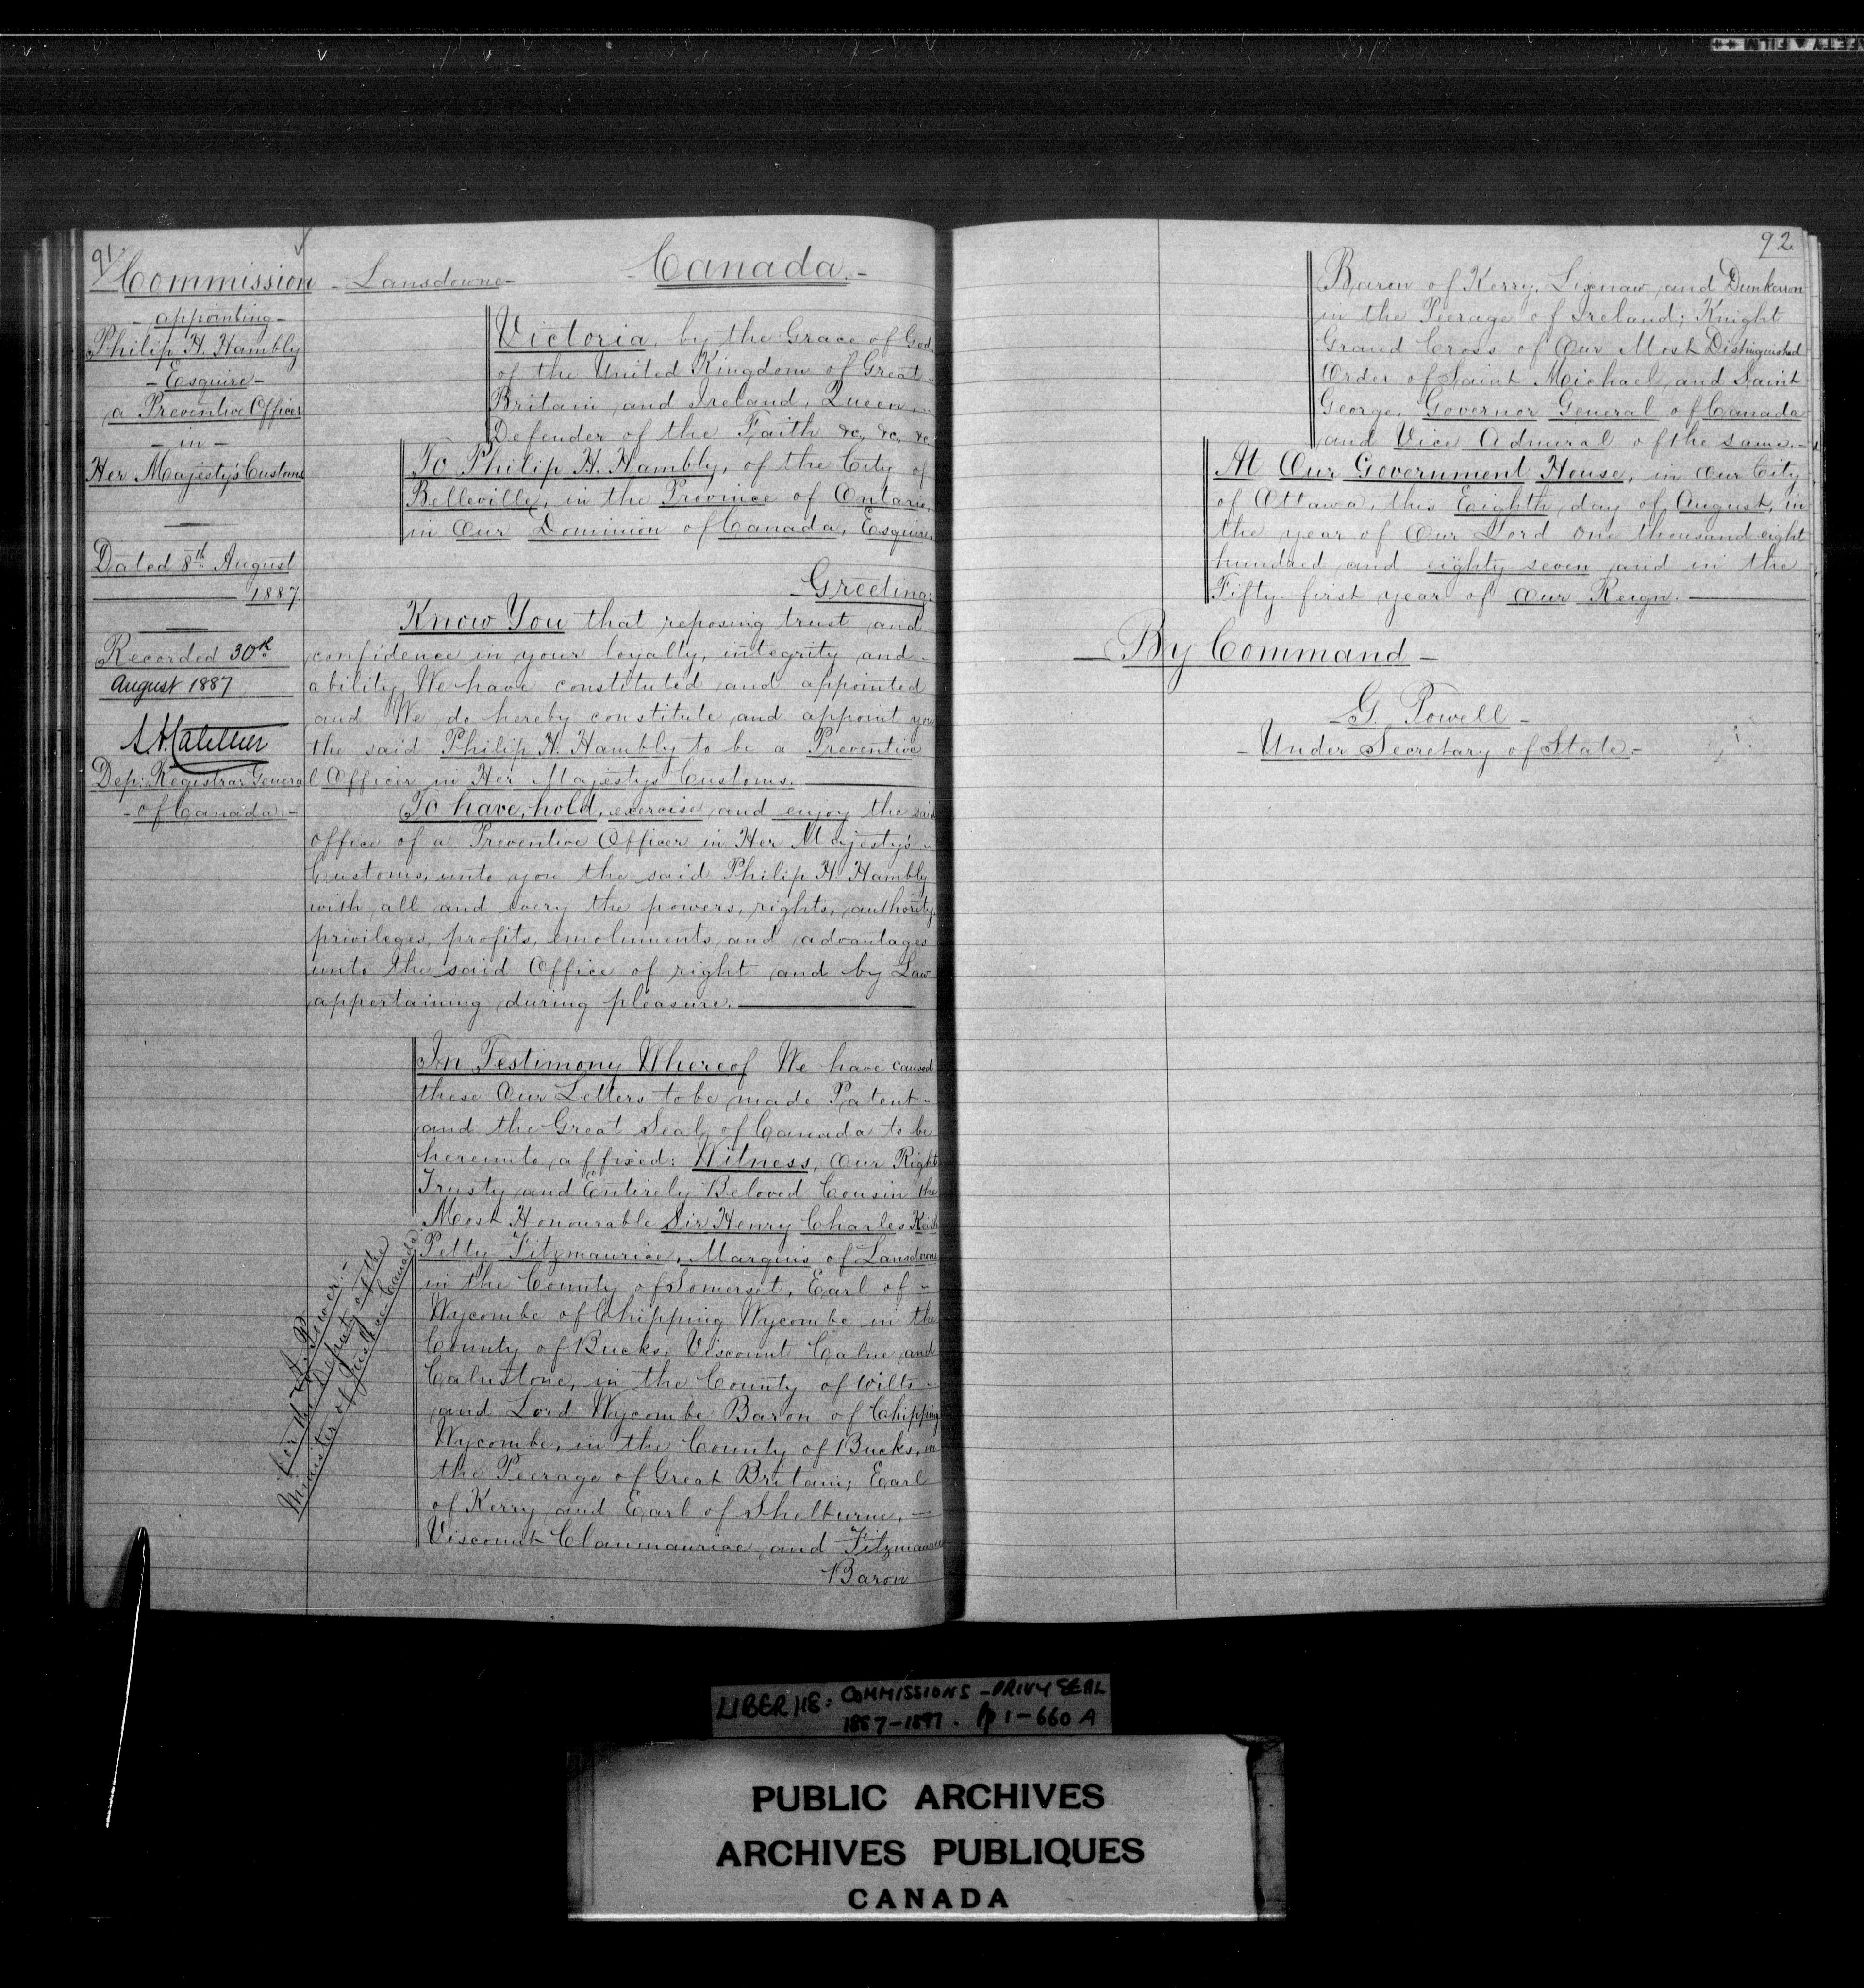 91
Commission
- appointing -
Philip H. Hambly
- Esquire -
a Preventive Officer
- in -
Her Majesty's Customs
Dated 8th August
1887
Recorded 30th
August 1887
Dep: Registrar General
- of Canada -
- Lansdowne -
- Canada. -
Victoria, by the Grace of God
of the United Kingdom of Great
Britain and Ireland, Queen,
Defender of the Faith &c, &c, &c
To Philip H. Hambly, of the City of
Belleville, in the Province of Ontario,
in Our Dominion of Canada, Esquire,
- Greeting:
Know You that reposing trust and
confidence in your loyalty, integrity and
ability, We have constituted and appointed
and We do hereby constitute and appoint you
the said Philip H. Hambly to be a Preventive
Officer in Her Majestys Customs.
To have, hold, exercise and enjoy the said
office of a Preventive Officer in Her Majesty's
Customs, unto you the said Philip H. Hambly
with all and every the powers, rights, authority,
privileges, profits, emoluments and advantages
unto the said Office of right and by Law
appertaining during pleasure.
In Testimony Whereof We have caused
these Our Letters to be made Patent
and the Great Seal of Canada to be
hereunto affixed: Witness, Our Right
Trusty and Entirely Beloved Cousin the
Most Honourable Sir Henry Charles Keith
Petty-Fitzmaurice, Marquis of Lansdowne
in the County of Somerset, Earl of
Wycombe of Chipping Wycombe in the
County of Bucks, Viscount Calne and
Calnstone, in the County of Wilts
and Lord Wycombe Baron of Chipping
Wycombe, in the County of Bucks, in
the Peerage of Great Britain; Earl
of Kerry and Earl of Shelburne,
Viscount Clanmaurice and Fitzmaurice
Baron
A. Power. -
For the Deputy of the
Minister of Justice Canada
92
Baron of Kerry, Lixnaw and Dunkerron
in the Peerage of Ireland; Knight
Grand Cross of Our Most Distinguished
Order of Saint Michael and Saint
George, Governor General of Canada
and Vice Admiral of the same. -
At Our Government House, in Our City
of Ottawa, this Eighth day of August, in
the year of Our Lord One thousand eight
hundred and eighty seven and in the
Fifty-first year of Our Reign.
- By Command -
- G. Powell -
- Under Secretary of State. -
LIBER 118: COMMISSIONS - PRIVY SEAL
1887-1897. pp 1-660 A
PUBLIC ARCHIVES
ARCHIVES PUBLIQUES
CANADA